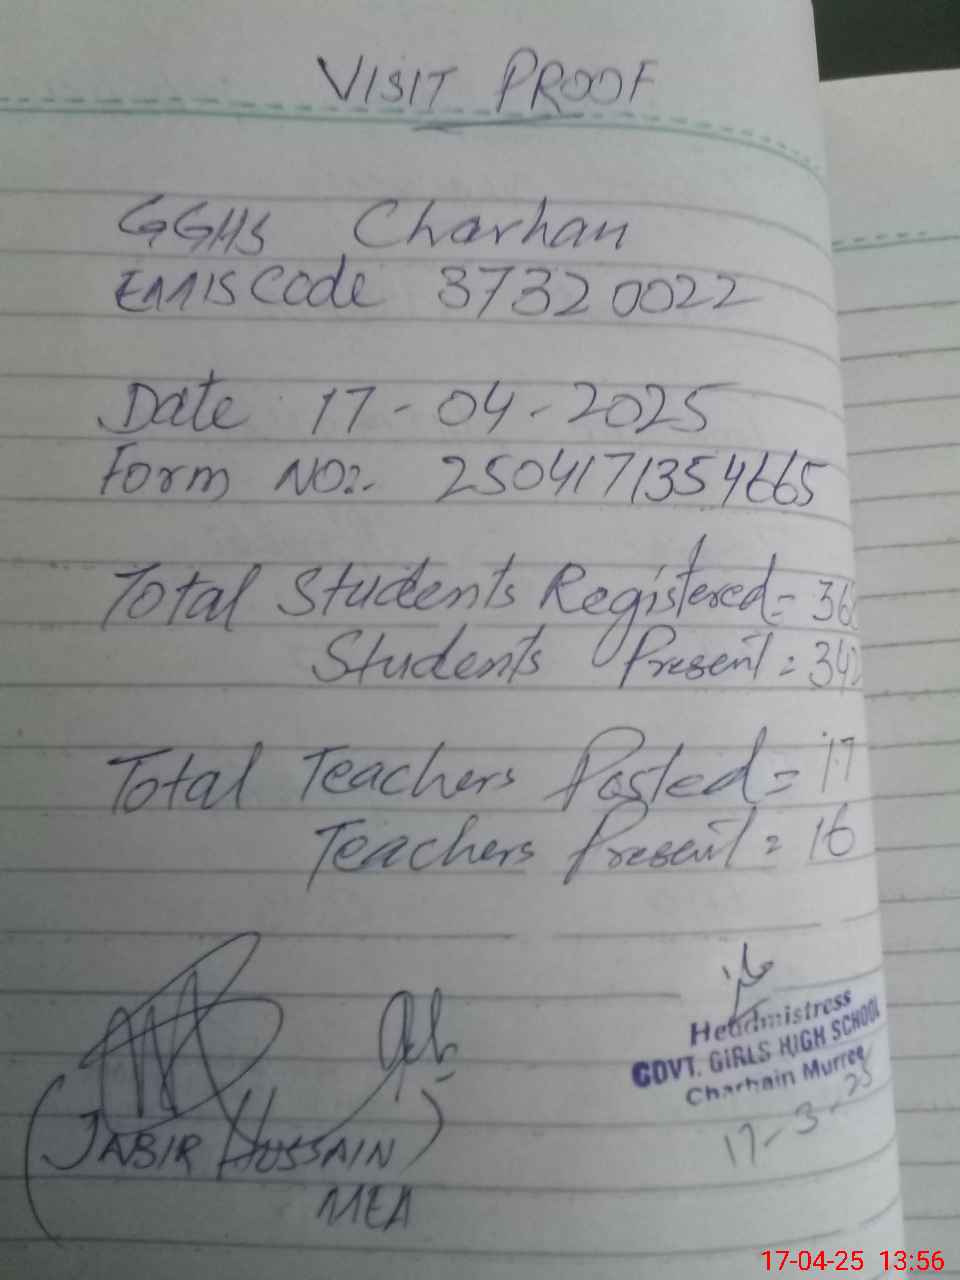 VISIT PROOF
GGHS Charhan
EMIS Code 37320022
Date 17-04-2025
Form NO:- 2504171354665
Total Students Registered = 36
Students Present = 342
Total Teachers Posted = 17
Teachers Present = 16
Headmistress
GOVT. GIRLS HIGH SCHOOL
Charhain Murree
17-3-25
(JABIR HUSSAIN)
MEA
17-04-25 13:56